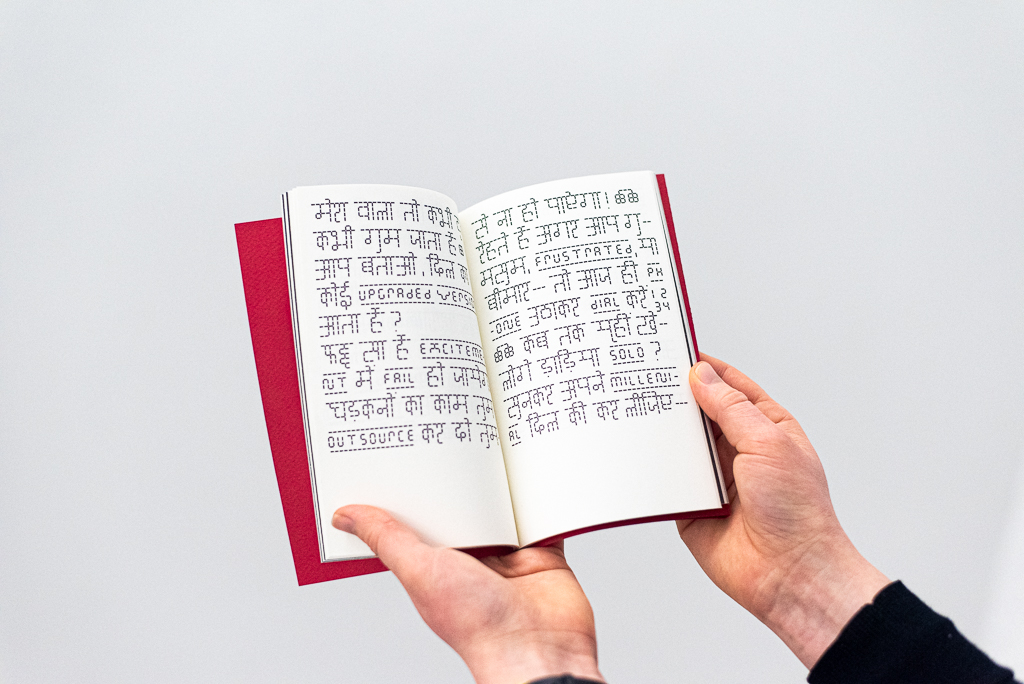 मेरा वाला तो कभी
कभी गुम जाता है
आप बताओ, दिल का
कोई UPGRADED VERSI
आता है ?
फट्टू सा है EXCITEME
NT में FAIL हो जायेगा
धड़कनों का काम तुम
OUTSOURCE कर दो तुम
से ना हो पाएगा! ॐॐ
रेहते हैं अगर आप गु--
मसुम, FRUSTRATED, या
बीमार-- तो आज ही PH
-ONE उठाकर DIAL करें 1 2 3 4
ॐॐ कब तक यूहीं रखे--
लोगे डाड़िया SOLO ?
सुनकर अपने MILLENI-
AL दिल की कर लीजिए--